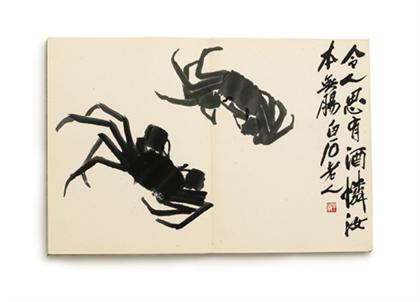 令人思有酒憐汝
本無腸白石老人